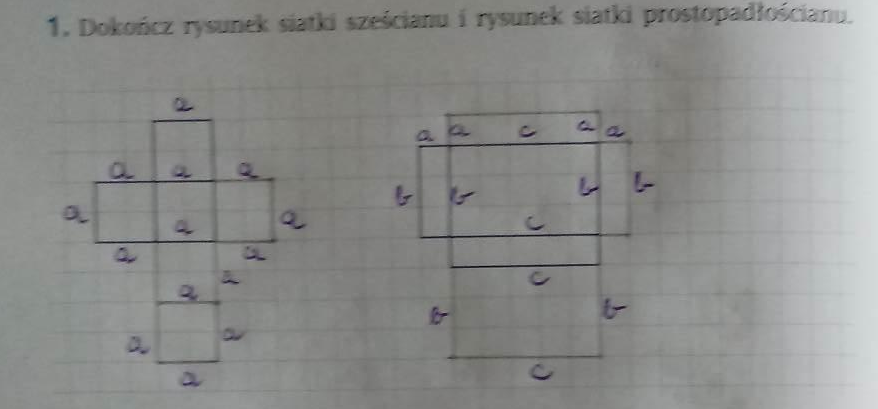 1. Dokończ rysunek siatki sześcianu i rysunek siatki prostopadłościanu.
a
a a a
a a a
a a
a
a
a a
a
a a c a a
b b b b
c
c
b b
c